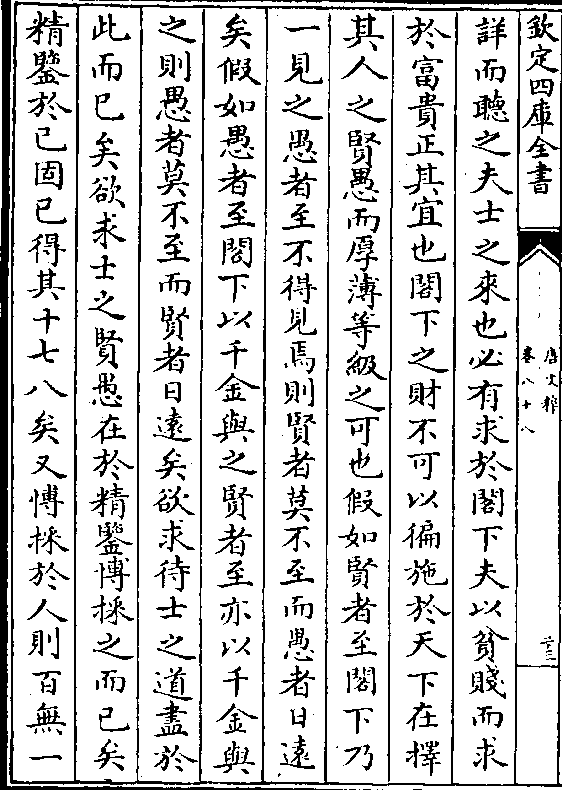 欽定四庫全書
唐文粹
卷八十八
二三
詳而聽之夫士之來也必有求於閣下夫以貧賤而求
於富貴正其宜也閣下之財不可以徧施於天下在擇
其人之賢愚而厚薄等級之可也假如賢者至閣下乃
一見之愚者至不得見焉則賢者莫不至而愚者日遠
矣假如愚者至閣下以千金與之賢者至亦以千金與
之則愚者莫不至而賢者日遠矣欲求待士之道盡於
此而已矣欲求士之賢愚在於精鑒博採之而已矣
精鑒於已固已得其十七八矣又博採於人則百無一